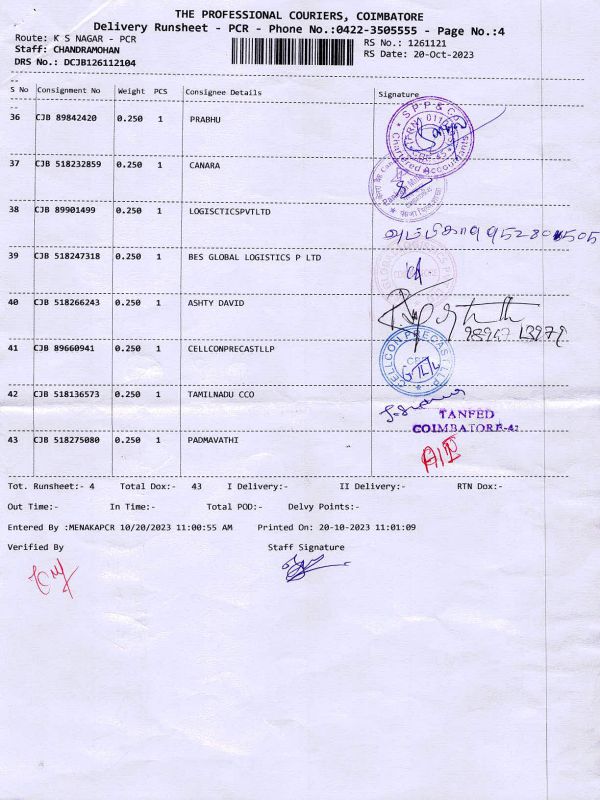 THE PROFESSIONAL COURIERS, COIMBATORE
Delivery Runsheet - PCR - Phone No.:0422-3505555 - Page No.:4
Route: K S NAGAR - PCR
RS No.: 1261121
Staff: CHANDRAMOHAN
RS Date: 20-Oct-2023
DRS No.: DCJB126112104
S No Consignment No Weight PCS Consignee Details Signature
36 CJB 89842420 0.250 1 PRABHU
S.P.P & Co
Chartered Accountants
37 CJB 518232859 0.250 1 CANARA
38 CJB 89901499 0.250 1 LOGISCTICSPVTLTD
39 CJB 518247318 0.250 1 BES GLOBAL LOGISTICS P LTD
40 CJB 518266243 0.250 1 ASHTY DAVID
41 CJB 89660941 0.250 1 CELLCONPRECASTLLP
CELLCON PRECAST LLP
42 CJB 518136573 0.250 1 TAMILNADU CCO
TANFED
COIMBATORE-42
43 CJB 518275080 0.250 1 PADMAVATHI
Tot. Runsheet:- 4 Total Dox:- 43 I Delivery:- II Delivery:- RTN Dox:-
Out Time:- In Time:- Total POD:- Delvy Points:-
Entered By :MENAKAPCR 10/20/2023 11:00:55 AM Printed On: 20-10-2023 11:01:09
Verified By Staff Signature